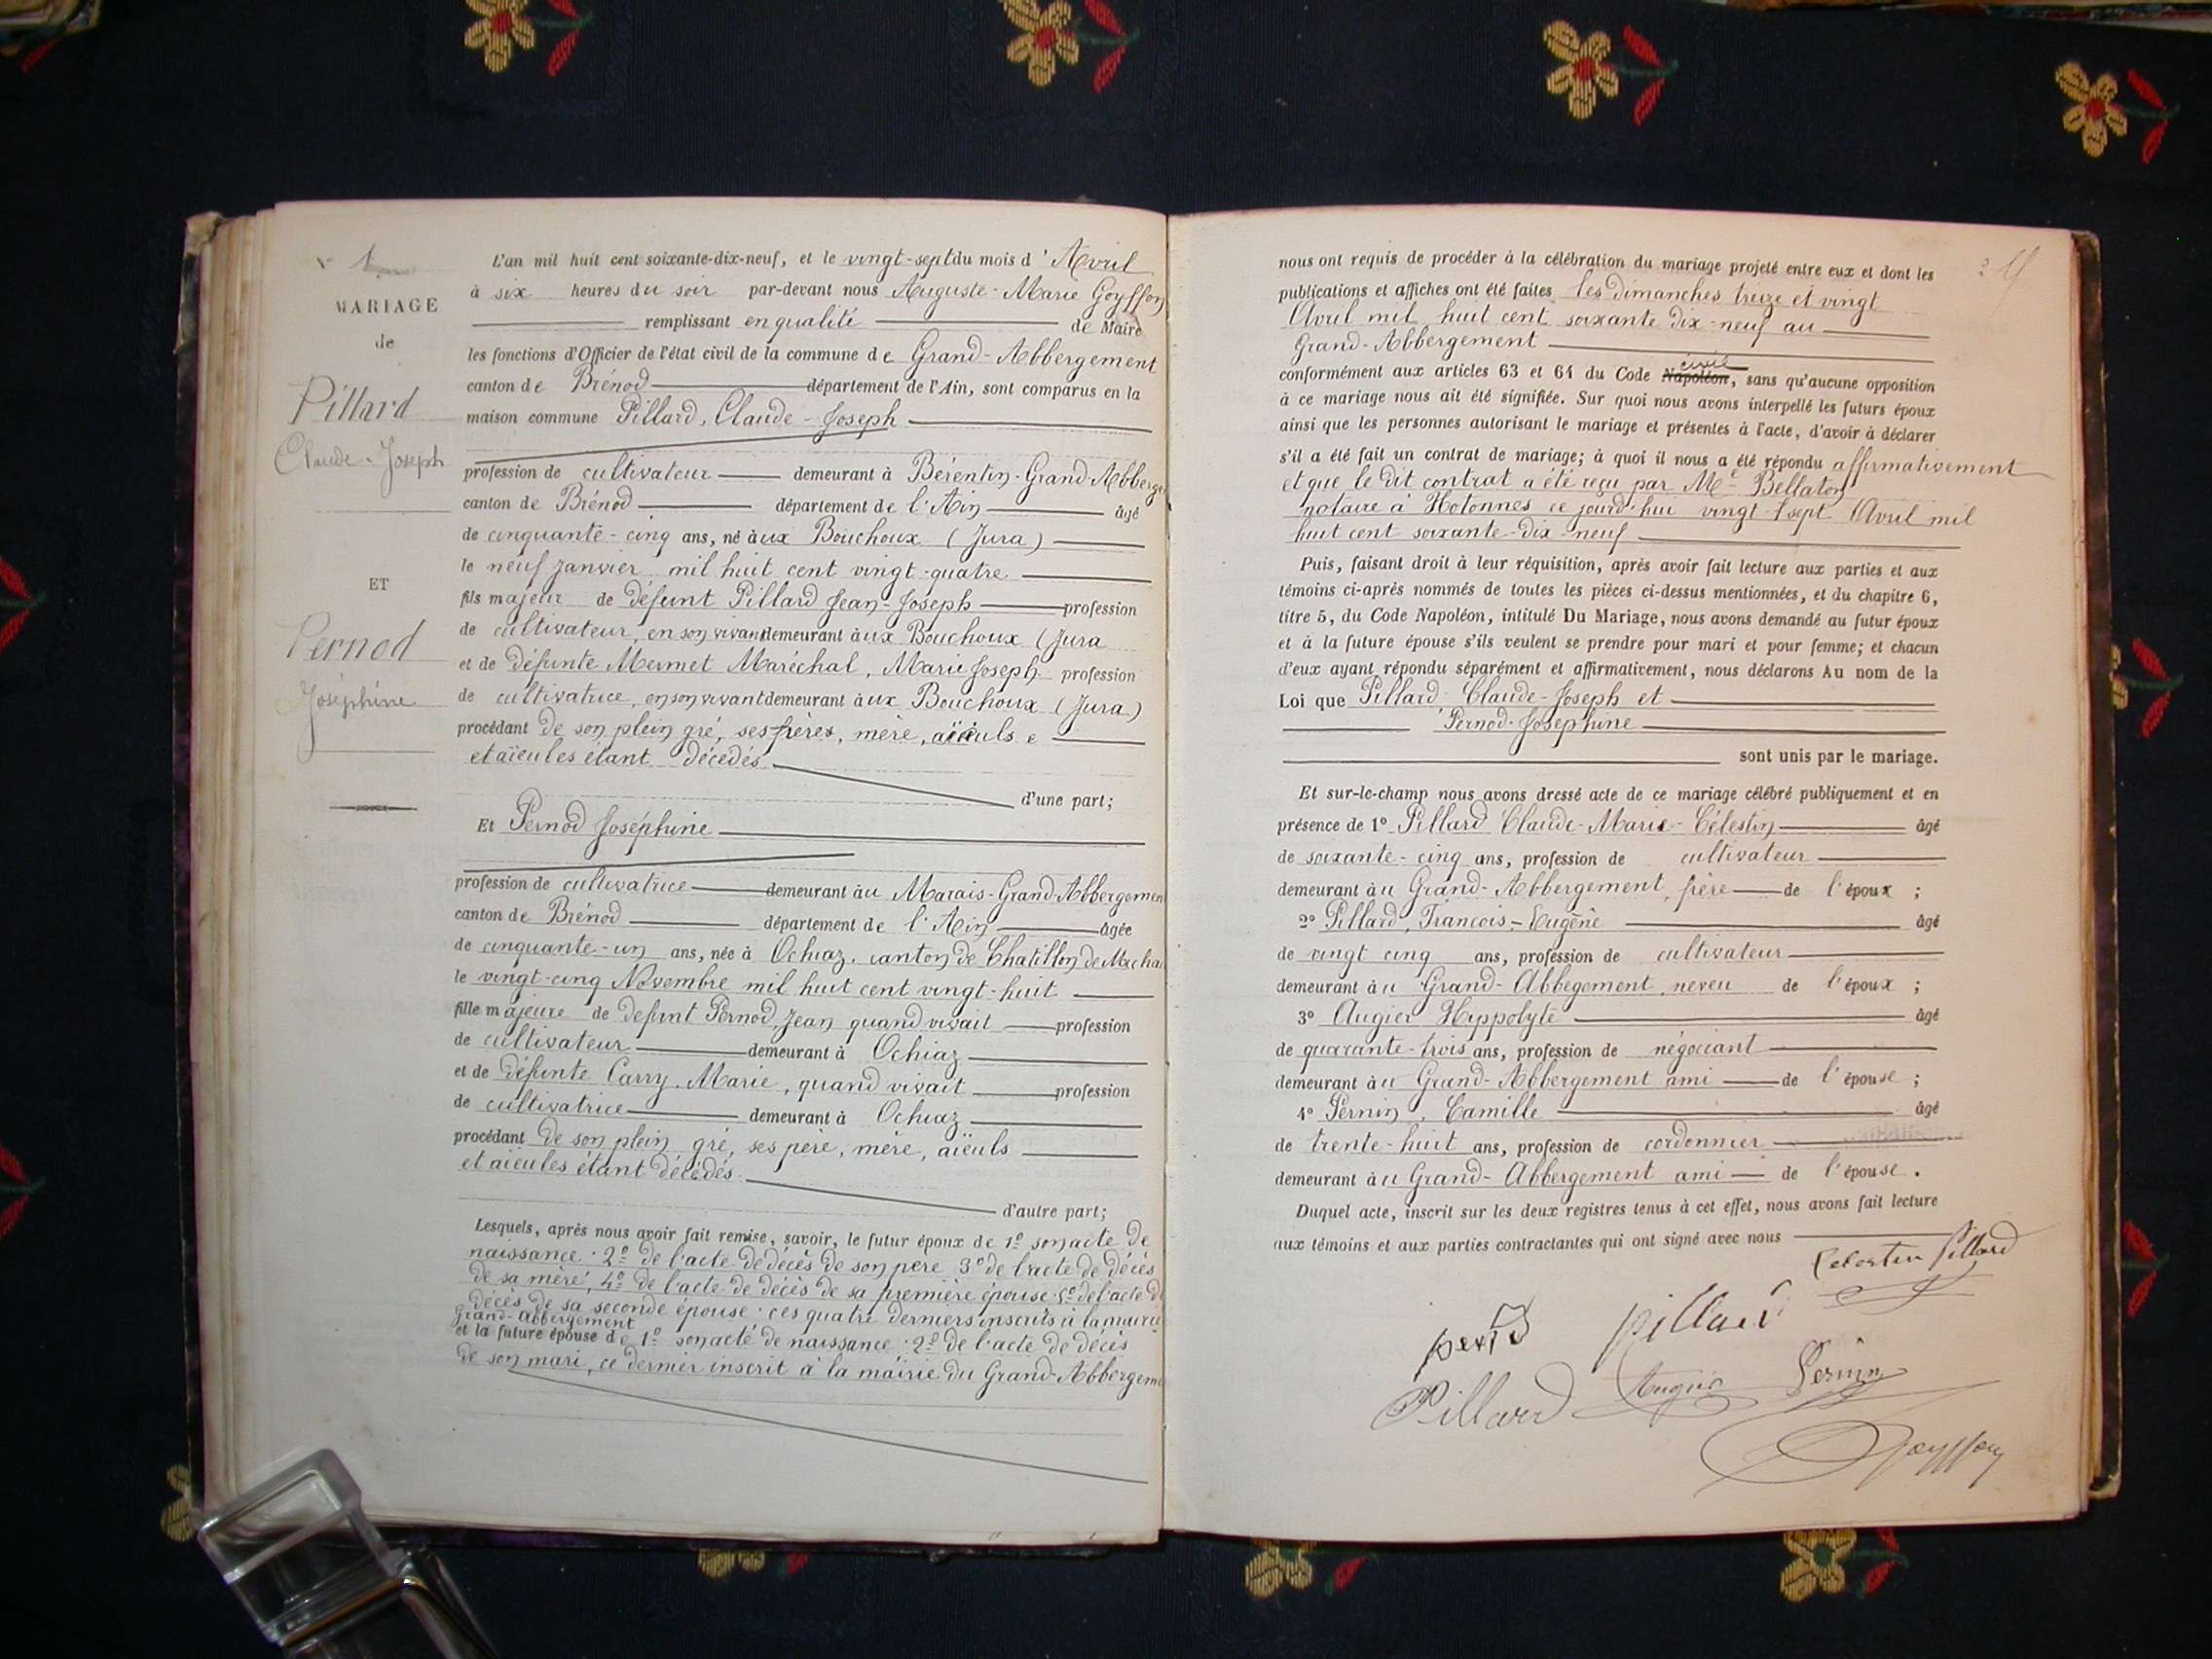 N° 1
MARIAGE
de
Pillard
Claude-Joseph
ET
Pernod
Joséphine
L'an mil huit cent soixante-dix-neuf, et le vingt-sept du mois d'Avril
à six heures du soir par-devant nous Auguste-Marie Goyffon
remplissant en qualité de Maire
les fonctions d'Officier de l'état civil de la commune de Grand-Abbergement
canton de Brénod département de l'Ain, sont comparus en la
maison commune Pillard, Claude-Joseph
profession de cultivateur demeurant à Bérentin-Grand-Abberge
canton de Brénod département de l'Ain âgé
de cinquante-cinq ans, né aux Bouchoux (Jura)
le neuf Janvier mil huit cent vingt-quatre
fils majeur de défunt Pillard Jean-Joseph profession
de cultivateur, en son vivant demeurant aux Bouchoux (Jura
et de défunte Mermet Maréchal, Marie Joseph profession
de cultivatrice, en son vivant demeurant aux Bouchoux (Jura)
procédant de son plein gré, ses pères, mère, aïeuls e
et aïeules étant décédés
d'une part;
Et Pernod Joséphine
profession de cultivatrice demeurant au Marais-Grand-Abbergemen
canton de Brénod département de l'Ain âgée
de cinquante-un ans, née à Ochiaz, canton de Chatillon de Micha
le vingt-cinq Novembre mil huit cent vingt-huit
fille majeure de defunt Pernod, Jean quand vivait profession
de cultivateur demeurant à Ochiaz
et de défunte Carry, Marie, quand vivait profession
de cultivatrice demeurant à Ochiaz
procédant de son plein gré, ses père, mère, aïeuls
et aïeules étant décédés
d'autre part;
Lesquels, après nous avoir fait remise, savoir, le futur époux de 1° son acte de
naissance. 2° de l'acte de décès de son père 3° de l'acte de décès
de sa mère, 4° de l'acte de décès de sa première épouse. 5° de l'acte de
décès de sa seconde épouse. ces quatre derniers inscrits à la mairie
grand-abbergement
et la future épouse de 1° son acte de naissance. 2° de l'acte de décès
de son mari, ce dernier inscrit à la mairie du Grand-Abbergeme
nous ont requis de procéder à la célébration du mariage projeté entre eux et dont les
publications et affiches ont été faites les dimanches treize et vingt
Avril mil huit cent soixante dix-neuf au
Grand-Abbergement
civil
conformément aux articles 63 et 64 du Code Napoléon, sans qu'aucune opposition
à ce mariage nous ait été signifiée. Sur quoi nous avons interpellé les futurs époux
ainsi que les personnes autorisant le mariage et présentes à l'acte, d'avoir à déclarer
s'il a été fait un contrat de mariage; à quoi il nous a été répondu affirmativement
et que le dit contrat a été reçu par Me Bellaton
notaire à Hotonnes ce jourd'hui vingt-sept Avril mil
huit cent soixante-dix-neuf
Puis, faisant droit à leur réquisition, après avoir fait lecture aux parties et aux
témoins ci-après nommés de toutes les pièces ci-dessus mentionnées, et du chapitre 6,
titre 5, du Code Napoléon, intitulé Du Mariage, nous avons demandé au futur époux
et à la future épouse s'ils veulent se prendre pour mari et pour femme; et chacun
d'eux ayant répondu séparément et affirmativement, nous déclarons Au nom de la
Loi que Pillard, Claude-Joseph et
Pernod-Josephine
sont unis par le mariage.
Et sur-le-champ nous avons dressé acte de ce mariage célébré publiquement et en
présence de 1° Pillard Claude-Marie-Célestin âgé
de soixante-cinq ans, profession de cultivateur
demeurant au Grand-Abbergement, frère de l'époux;
2° Pillard, François-Eugène âgé
de vingt cinq ans, profession de cultivateur
demeurant au Grand-Abbegement, neveu de l'époux;
3° Augier Hippolyte âgé
de quarante-trois ans, profession de négociant
demeurant au Grand-Abbergement ami de l'épouse;
4° Pernin, Camille âgé
de trente-huit ans, profession de cordonnier
demeurant au Grand-Abbergement ami de l'épouse.
Duquel acte, inscrit sur les deux registres tenus à cet effet, nous avons fait lecture
aux témoins et aux parties contractantes qui ont signé avec nous
Celestin Pillard
pillard
Pillard Augier Pernin
Goyffon